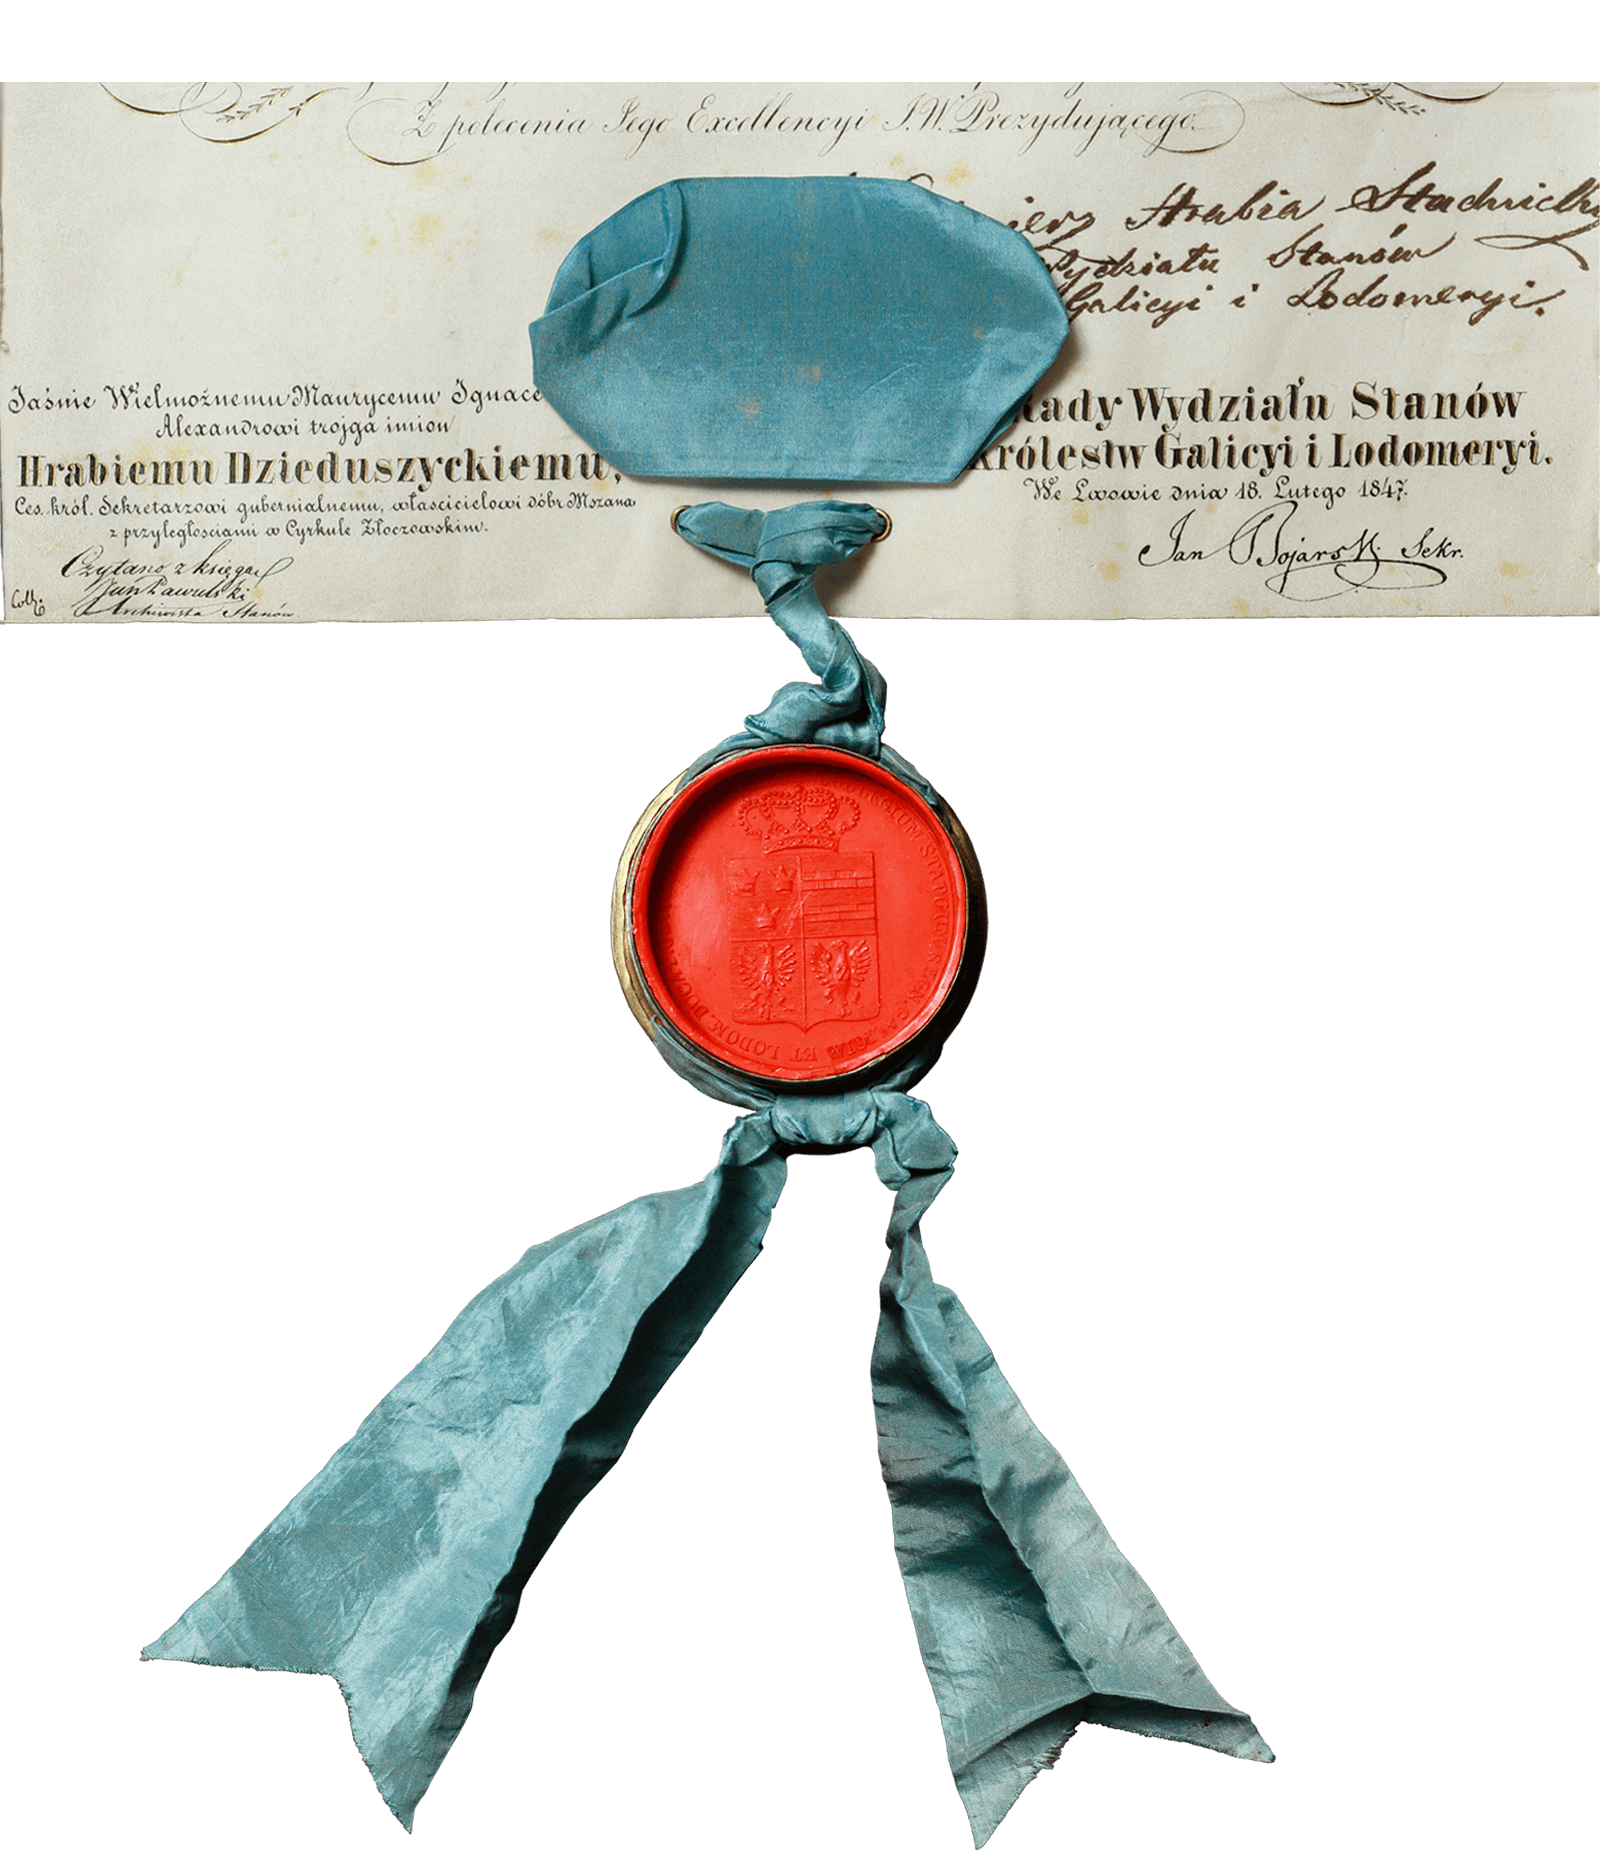 Z polecenia Jego Excellencyi J.W. Prezydującego.
Hrabia Stadnicki
Wydziału Stanów
Galicyi i Lodomeryi.
Jaśnie Wielmożnemu Maurycemu Ignace
Alexandrowi trojga imion
Hrabiemu Dzieduszyckiemu,
Ces. król. Sekretarzowi gubernialnemu, właścicielowi dóbr Mszana
z przyległosciami w Cyrkule Złoczowskim.
Czytano z księgą
Jan Pawulski
Archiwista Stanów
Coll:
Rady Wydziału Stanów
Królestw Galicyi i Lodomeryi.
We Lwowie dnia 18. Lutego 1847.
Jan Bojarski Sekr.
REGNUM STATUUM REGN. GALICIÆ ET LODOM. DUCAT.